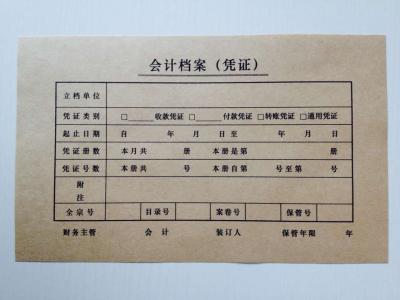 会计档案（凭证）
立档单位
凭证类别 □______收款凭证 □______付款凭证 □转账凭证 □通用凭证
起止日期 自 年 月 日至 年 月 日
凭证册数 本月共 册 本册是第 册
凭证号数 本册共 号 本册自第 号至第 号
附注
全宗号 目录号 案卷号 保管号
财务主管 会计 装订人 保管年限 年